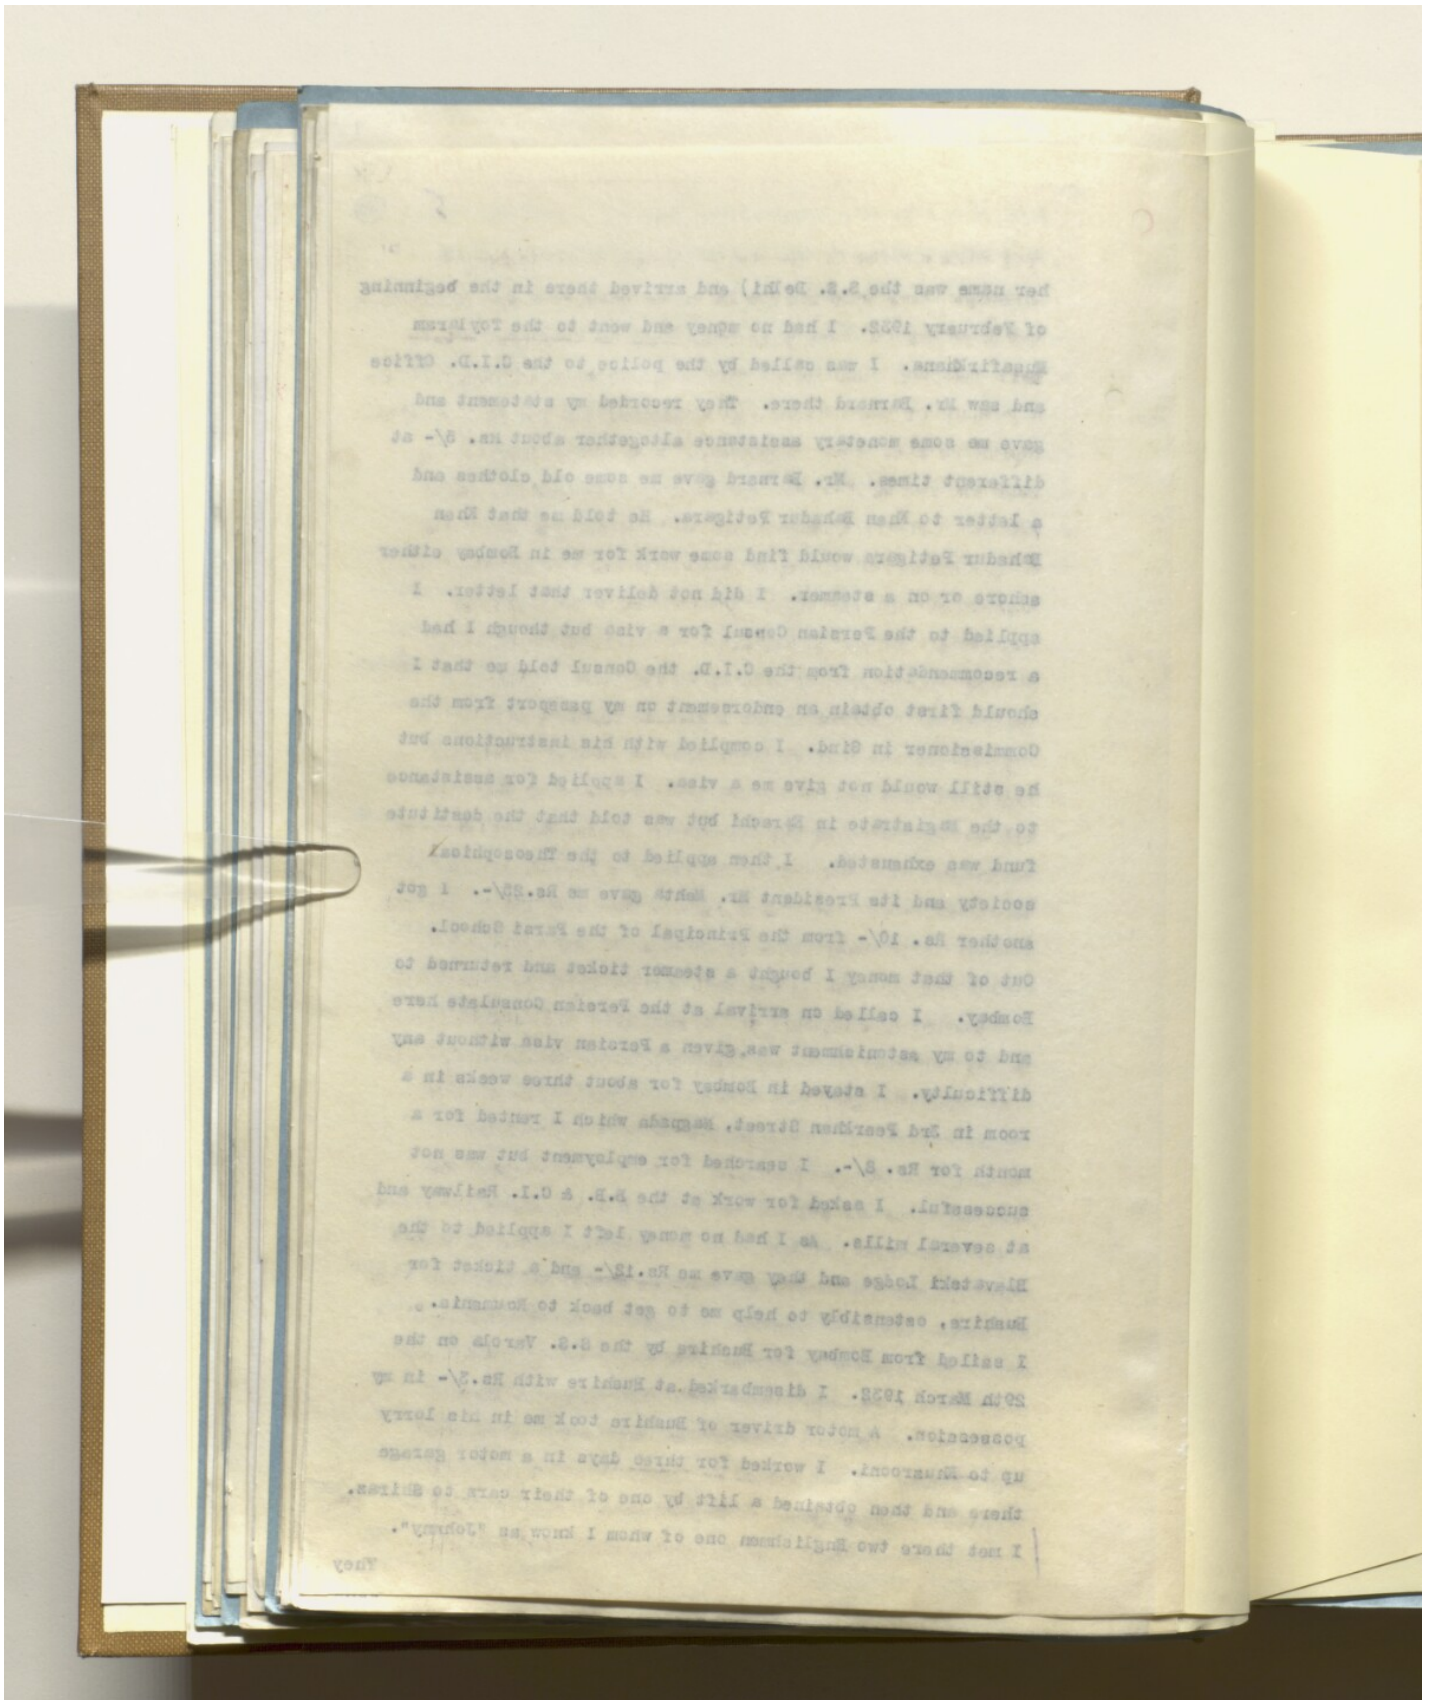 her name was the S.S. Delhi) and arrived there in the beginning
of February 1932. I had no money and went to the Toylaram
Musafirkhana. I was called by the police to the C.I.D. Office
and saw Mr. Barnard there. They recorded my statement and
gave me some monetary assistance altogether about Rs. 5/- at
different times. Mr. Barnard gave me some old clothes and
a letter to Khan Bahadur Petigara. He told me that Khan
Bahadur Petigara would find some work for me in Bombay either
ashore or on a steamer. I did not deliver that letter. I
applied to the Persian Consul for a visa but though I had
a recommendation from the C.I.D. the Consul told me that I
should first obtain an endorsement on my passport from the
Commissioner in Sind. I complied with his instructions but
he still would not give me a visa. I applied for assistance
to the Magistrate in Karachi but was told that the destitute
fund was exhausted. I then applied to the Theosophical
society and its President Mr. Mehta gave me Rs.25/-. I got
another Rs. 10/- from the Principal of the Parsi School.
Out of that money I bought a steamer ticket and returned to
Bombay. I called on arrival at the Persian Consulate here
and to my astonishment was given a Persian visa without any
difficulty. I stayed in Bombay for about three weeks in a
room in 3rd Peerkhan Street, Nagpada which I rented for a
month for Rs. 8/-. I searched for employment but was not
successful. I asked for work at the B.B. & C.I. Railway and
at several mills. As I had no money left I applied to the
Blavatski Lodge and they gave me Rs.12/- and a ticket for
Bushire, ostensibly to help me to get back to Roumania.
I sailed from Bombay for Bushire by the S.S. Varola on the
29th March 1932. I disembarked at Bushire with Rs.3/- in my
possession. A motor driver of Bushire took me in his lorry
up to Khusrooni. I worked for three days in a motor garage
there and then obtained a lift by one of their cars to Shiraz.
I met there two Englishmen one of whom I know as "Johnny".
They